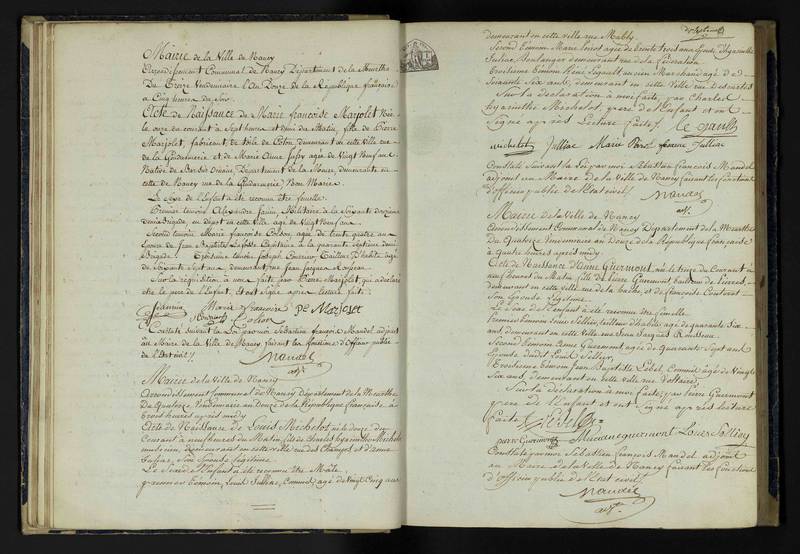 Mairie de la Ville de Nancy
Arrondissement Communal de Nancy Département de la Meurthe
Du Treize Vendemiaire l'An Douze de la République française
a Cinq heures du Soir
Acte de Naissance de Marie françoise Marjolet Née
le onze du courant à Sept heures et demi du Matin, fille de Pierre
Marjolet, fabricant de toile de Coton demeurant en cette Ville rue
de la Gendarmerie et de Marie Anne agée de Vingt Neuf ans
Native de Département de la Meuse, demeurante en
cette de Nancy rue de la Gendarmerie Non Mariée.
Le Sexe de l'Enfant a été reconnu être femelle.
Premier temoin Alexandre Militaire à la Soixante
demi Brigade, en dépot en cette Ville agé de Vingt Neuf ans
Second temoin Marie françoise Colson, agée de trente quatre ans
Epouse de Jean Baptiste Capitaine à la quarante Septieme demi
Brigade. Troisieme temoin Joseph Tailleur d'habits agé
de Soixante Sept ans, demeurant rue Jean Jacques
Sur la réquisition a nous faite par Pierre Marjolet qui a déclaré
être le pere de l'Enfant, et ont Signé après lecture faite
Marie françoise Pe Marjolet
Colson
Constaté suivant la Loi par moi Sebastien françois Mandel adjoint
au Maire de la Ville de Nancy, faisant les fonctions d'Officier public
de l'Etat Civil
Mandel
adjt
Mairie de la Ville de Nancy
Arrondissement Communal de Nancy Département de la Meurthe
Du Quatorze Vendemiaire an Douze de la République française à
trois heures après midy
Acte de Naissance de Louis Michelot né le douze du
Courant à neuf heures du Matin, fils de Charles hyacinthe Michelot
musicien, demeurant en cette ville rue des Champs et d'anne
Julliac, Son Epouse légitime.
Le Sexe de l'Enfant a été reconnu être Male.
premier temoin, Louis Julliac, Commis, agé de Vingt Cinq ans
demeurant en cette ville rue Mably
Second temoin Marie agée de trente trois ans Epouse
Julliac, Boulanger demeurant rue de la federation
Troisieme temoin René Legault ancien Marchand agé de
Soixante Six ans, demeurant en cette Ville rue Descartes
Sur la déclaration à moi faite, par Charles
hyacinthe Michelot, père de l'Enfant et ont
Signé après Lecture faite.
le gault
michelot Julliac Marie femme Julliac
Constaté Suivant la Loi par moi Sébastien françois Mandel
adjoint au Maire de la Ville de Nancy faisant les fonctions
d'officier public de l'Etat civil
Mandel
adjt
Mairie de la Ville de Nancy
Arrondissement Communal de Nancy Département de la Meurthe
Du Quatorze Vendemiaire an Douze de la République française
à quatre heures après midy
Acte de Naissance d'anne Guermont, née le treize du Courant à
neuf heures du Matin, fille de pierre Guermont, tailleur de pierres,
demeurant en cette ville rue de la et de françoise
Son Epouse Légitime.
Le Sexe de l'enfant a été reconnu être femelle
Premier temoin Louis tailleur d'habits agé de quarante Six
ans, demeurant en cette ville rue Jean Jacques Rousseau.
Second temoin Anne Guermont agée de quarante Sept ans
Epouse dudit Louis
Troisieme temoin Jean Baptiste Lebel, Commis agé de Vingt
Six ans, demeurant en cette ville rue Voltaire,
Sur la déclaration à moi faite, par Pierre Guermont
père de l'enfant et ont Signé après lecture
faite.
pierre Guermont guermont Louis
Constaté par moi Sébastien françois Mandel adjoint
au Maire de la Ville de Nancy faisant les fonctions
d'officier public de l'Etat civil.
Mandel
adjt